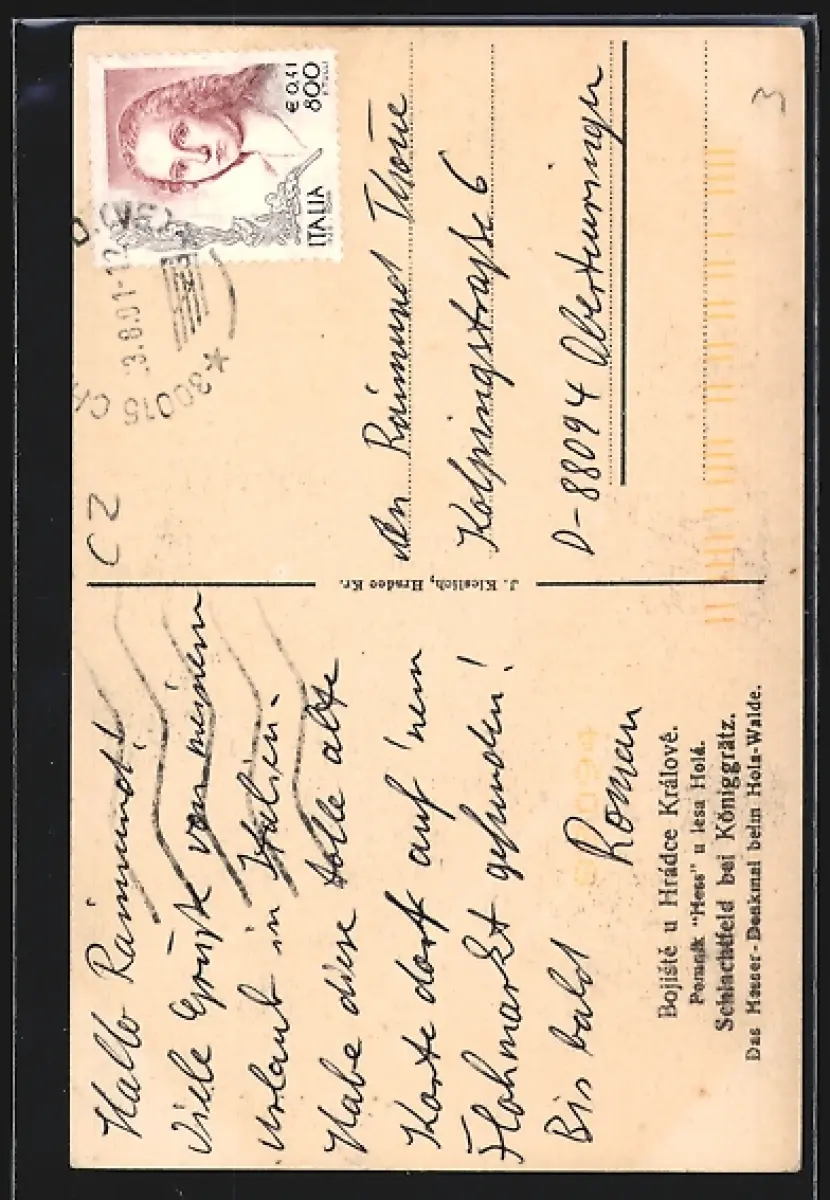 Hallo Raimund!
Viele Grüße von meinem
Urlaub in Italien.
Habe diese tolle alte
Karte dort auf 'nem
Flohmarkt gefunden!
Bis bald
Roman
Bojiště u Hrádce Králové.
Pomník "Hess" u lesa Holá.
Schlachtfeld bei Königgrätz.
Das Hesser-Denkmal beim Hola-Walde.
J. Kleslich, Hradec Kr.
CZ
ITALIA
€ 0,41
800
3.8.01-12
*30015 CH
An Raimund Thone
Kolpingstraße 6
D-88094 Oberteuringen
3
88094